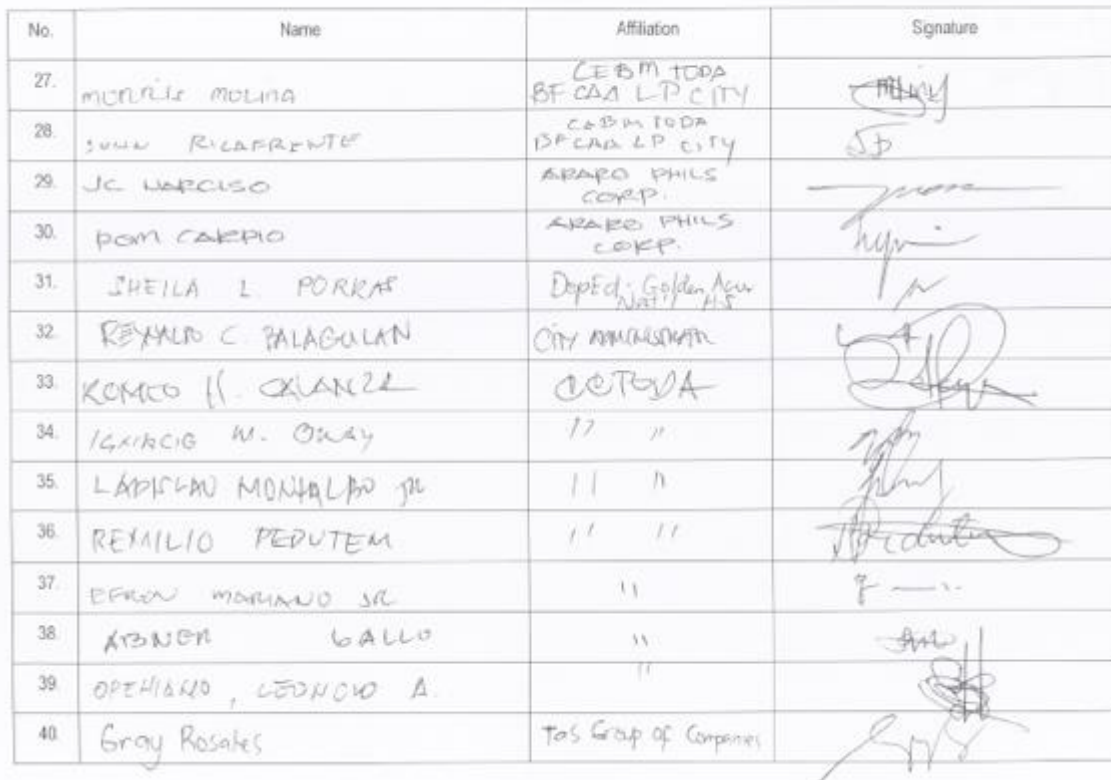 No. Name Affiliation Signature
27. MORRIS MOLINA CEBM TODA
BF CAA LP CITY
28. RICAFRENTE CEBM TODA
BF CAA LP CITY
29. JC NARCISO ARARO PHILS
CORP.
30. DOM CARPIO ARARO PHILS
CORP.
31. SHEILA L. PORRAS DepEd - Golden Acres
Nat'l HS
32. REYNALDO C BALAGULAN CITY ADMINISTRATOR
33. ROMEO CCTODA
34. M. " "
35. LADISLAO MONTALBO JR " "
36. REMILIO PEDUTEM " "
37. EFREN MARIANO JR "
38. ABNER GALLO "
39. OPENIANO, LEONCIO A. "
40. Gray Rosales Tas Group of Companies